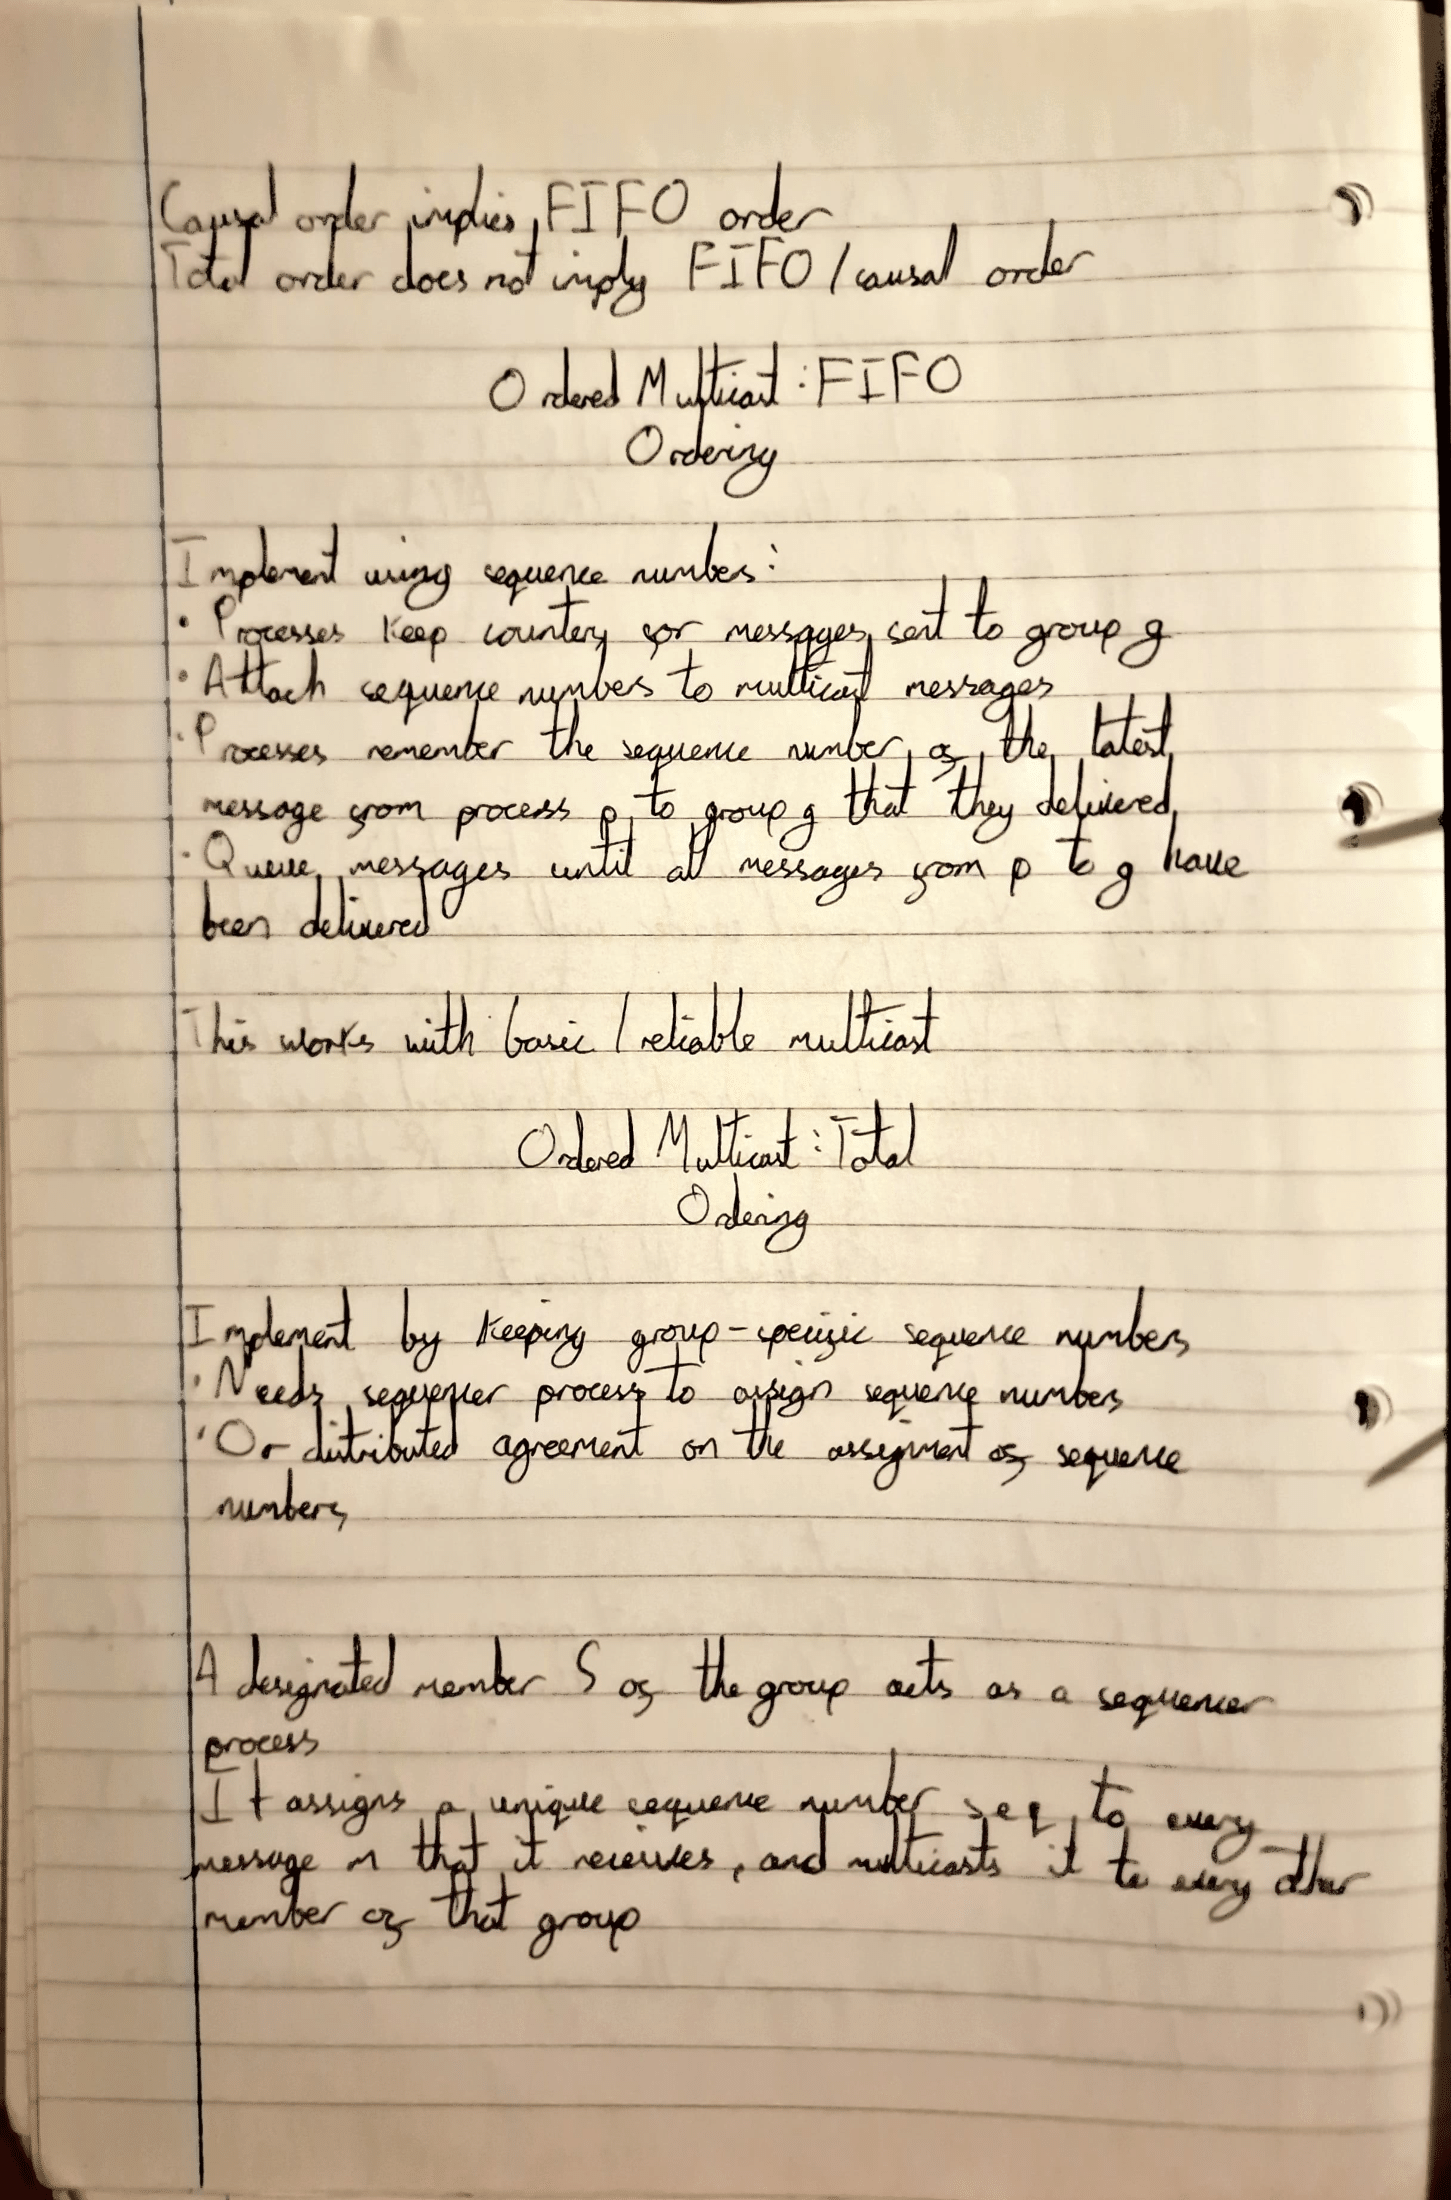 Causal order implies FIFO order
Total order does not imply FIFO / causal order
Ordered Multicast : FIFO
Ordering
Implement using sequence numbers:
• Processes keep counters for messages sent to group g
• Attach sequence numbers to multicast messages
• Processes remember the sequence number of the latest
message from process p to group g that they delivered
• Queue messages until all messages from p to g have
been delivered
This works with basic / reliable multicast
Ordered Multicast : Total
Ordering
Implement by keeping group-specific sequence numbers
• Needs sequencer process to assign sequence numbers
• Or distributed agreement on the assignment of sequence
numbers
A designated member S of the group acts as a sequencer
process
It assigns a unique sequence number seq to every
message m that it receives, and multicasts it to every other
member of that group